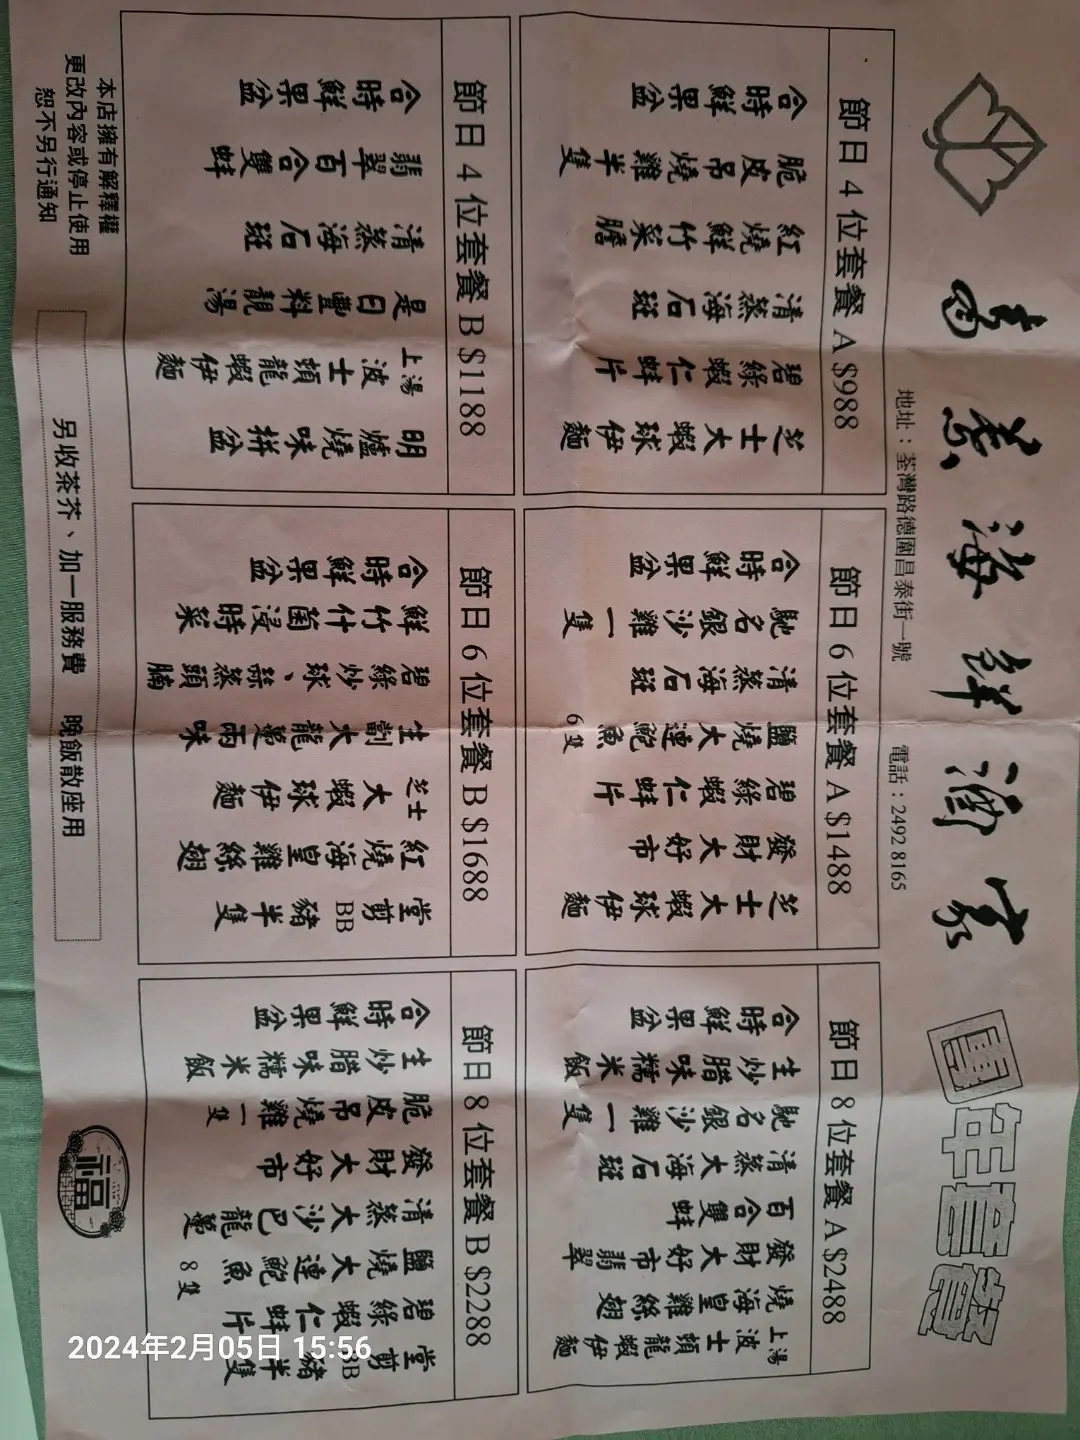 燕海鮮酒家 團年套餐
地址：荃灣路德圍昌泰街一號 電話：2492 8165
節日 4 位套餐 A $988
芝士大蝦球伊麵
碧綠蝦仁蚌片
清蒸海石斑
紅燒鮮竹菜膽
脆皮吊燒雞半隻
合時鮮果盆
節日 6 位套餐 A $1488
芝士大蝦球伊麵
發財大好市
碧綠蝦仁蚌片
鹽燒大連鮑魚6隻
清蒸海石斑
馳名銀沙雞一隻
合時鮮果盆
節日 8 位套餐 A $2488
上湯波士頓龍蝦伊麵
燒海皇雞絲翅
發財大好市翡翠
百合雙蚌
清蒸大海石斑
馳名銀沙雞一隻
生炒腊味糯米飯
合時鮮果盆
節日 4 位套餐 B $1188
明爐燒味拼盆
上湯波士頓龍蝦伊麵
是日豐料靚湯
清蒸海石斑
翡翠百合雙蚌
合時鮮果盆
節日 6 位套餐 B $1688
堂剪BB豬半隻
紅燒海皇雞絲翅
芝士大蝦球伊麵
生劏大龍躉兩味
碧綠炒球、蒜蒸頭腩
鮮竹什菌浸時菜
合時鮮果盆
節日 8 位套餐 B $2288
堂剪BB豬半隻
碧綠蝦仁蚌片
鹽燒大連鮑魚8隻
清蒸大沙巴龍躉
發財大好市
脆皮吊燒雞一隻
生炒腊味糯米飯
合時鮮果盆
本店擁有解釋權
更改內容或停止使用
恕不另行通知
另收茶芥、加一服務費 晚飯散座用
福
2024年2月05日 15:56